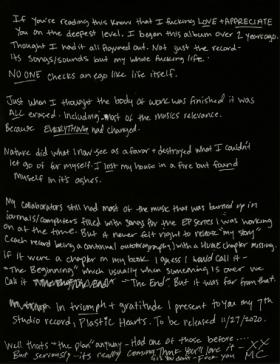 If you're reading this know that I fucking LOVE + APPRECIATE
you on the deepest level. I began this album over 2 years ago.
Thought I had it all figured out. Not just the record-
its songs/sounds but my whole fucking life.
NO ONE checks an ego like life itself.
Just when I thought the body of work was finished it was
ALL erased. Including most of the musics relevance.
Because EVERYTHING had changed.
Nature did what I now see as a favor + destroyed what I couldn't
let go of for myself. I lost my house in a fire but found
myself in its ashes.
My collaborators still had most of the music that was burned up in
journals/computers filled with songs for the EP series I was working
on at the time. But it never felt right to release "my story"
(each record being a continual autobiography) with a HUGE chapter missing.
If it were a chapter in my book I guess I would call it -
"The Beginning" which usually when something is over we
call it "The End". But it was far from that.
In triumph + gratitude I present to you my 7th
studio record, Plastic Hearts. To be released 11/27/2020.
Well that's "the plan" anyway - Had one of those before....
But seriously - its really coming. Think you'll love it. XX
MC